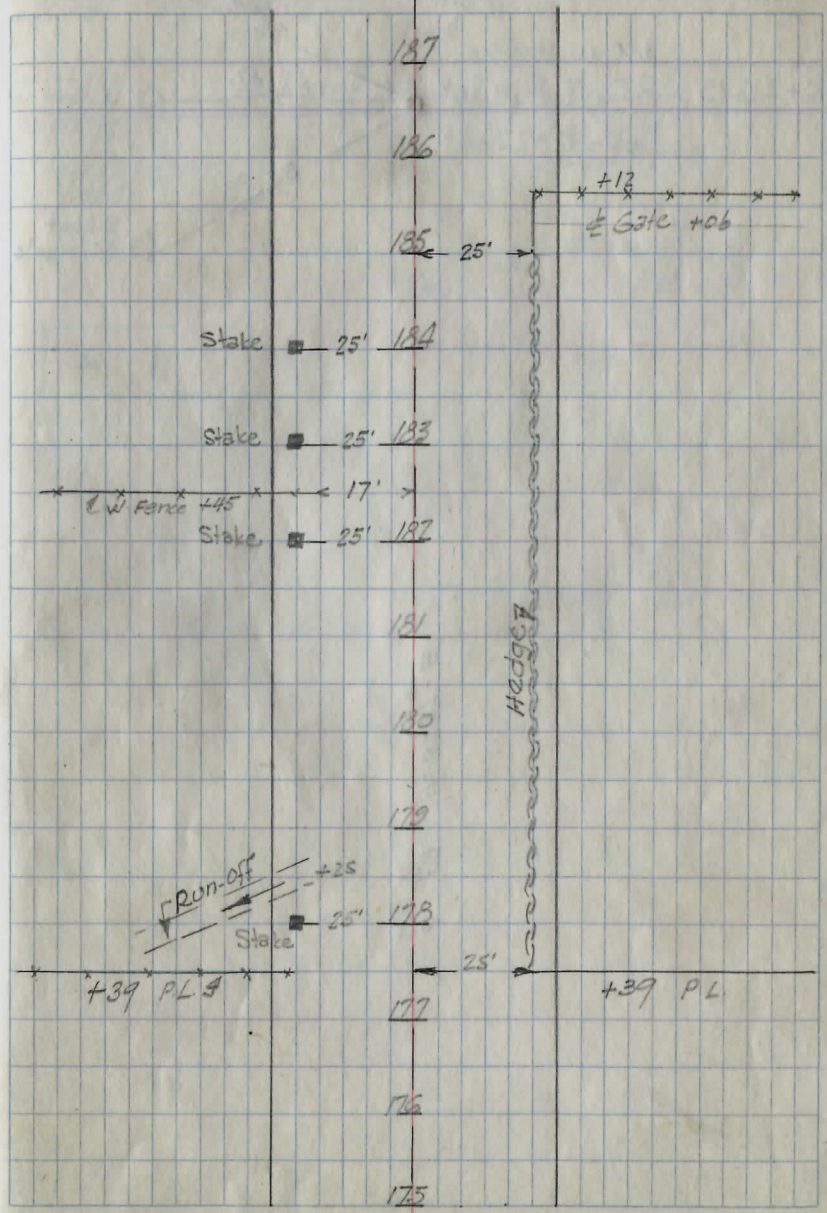 187
186
+12
℄ Gate +06
185 25'
Stake 25' 184
Stake 25' 183
17'
W Fence +45
Stake 25' 182
181
Hedge
180
179
Run-off +25
25' 178
Stake
25'
+39 P.L. +39 P.L.
177
176
175